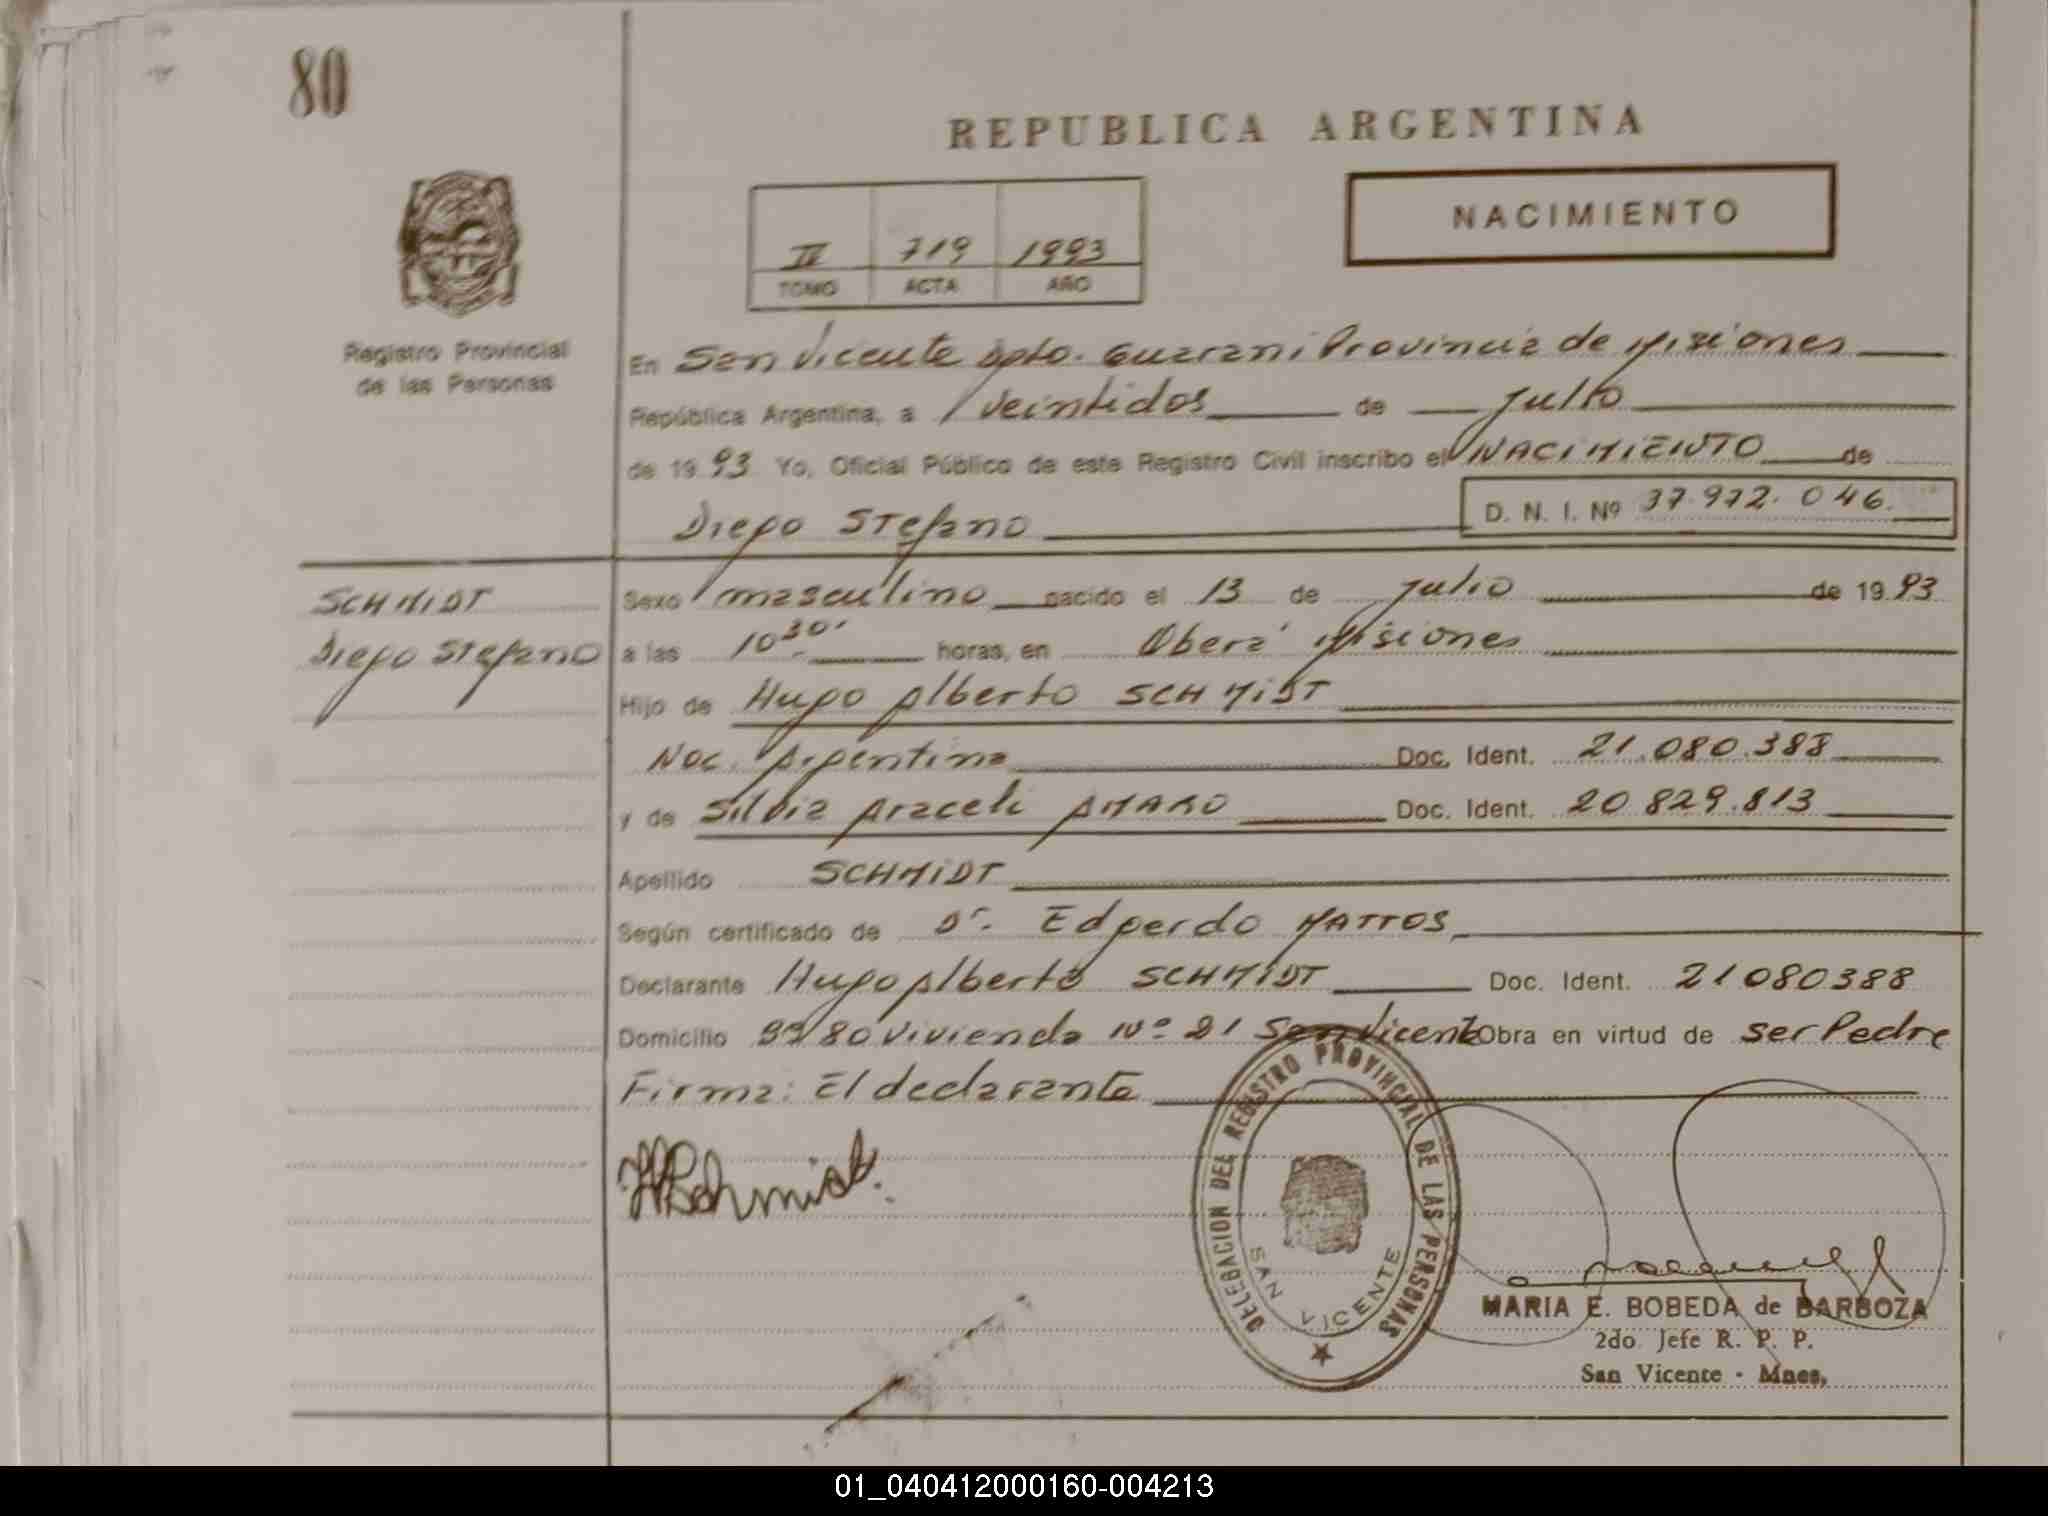 80
REPUBLICA ARGENTINA
NACIMIENTO
IV 719 1993
TOMO ACTA AÑO
Registro Provincial
de las Personas
En San Vicente Dpto. Guarani Provincia de Misiones
República Argentina, a veintidos de Julio
de 1993 Yo, Oficial Público de este Registro Civil inscribo el NACIMIENTO de
Diego Stefano D. N. I. Nº 37.972.046.
SCHMIDT
Diego Stefano
Sexo masculino nacido el 13 de Julio de 1993
a las 10 30' horas, en Oberá Misiones
Hijo de Hugo Alberto SCHMIDT
Nac. Argentina Doc. Ident. 21.080.388
y de Silvia Araceli AMARO Doc. Ident. 20.829.813
Apellido SCHMIDT
Según certificado de Dr. Edgardo MATTOS
Declarante Hugo Alberto SCHMIDT Doc. Ident. 21080388
Domicilio 99/80 vivienda Nº 21 San Vicente Obra en virtud de ser Padre
Firma: El declarante
HASchmidt.
DELEGACION DEL REGISTRO PROVINCIAL DE LAS PERSONAS
SAN VICENTE
MARIA E. BOBEDA de BARBOZA
2do. Jefe R. P. P.
San Vicente - Mnes,
01_040412000160-004213